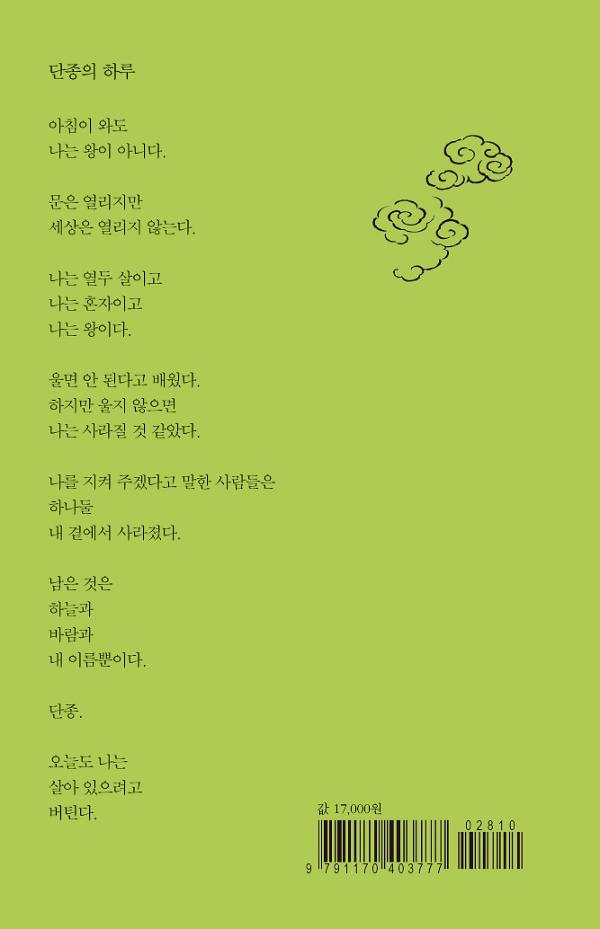 단종의 하루
아침이 와도
나는 왕이 아니다.
문은 열리지만
세상은 열리지 않는다.
나는 열두 살이고
나는 혼자이고
나는 왕이다.
울면 안 된다고 배웠다.
하지만 울지 않으면
나는 사라질 것 같았다.
나를 지켜 주겠다고 말한 사람들은
하나둘
내 곁에서 사라졌다.
남은 것은
하늘과
바람과
내 이름뿐이다.
단종.
오늘도 나는
살아 있으려고
버틴다.
값 17,000원
02810
9 791170 403777